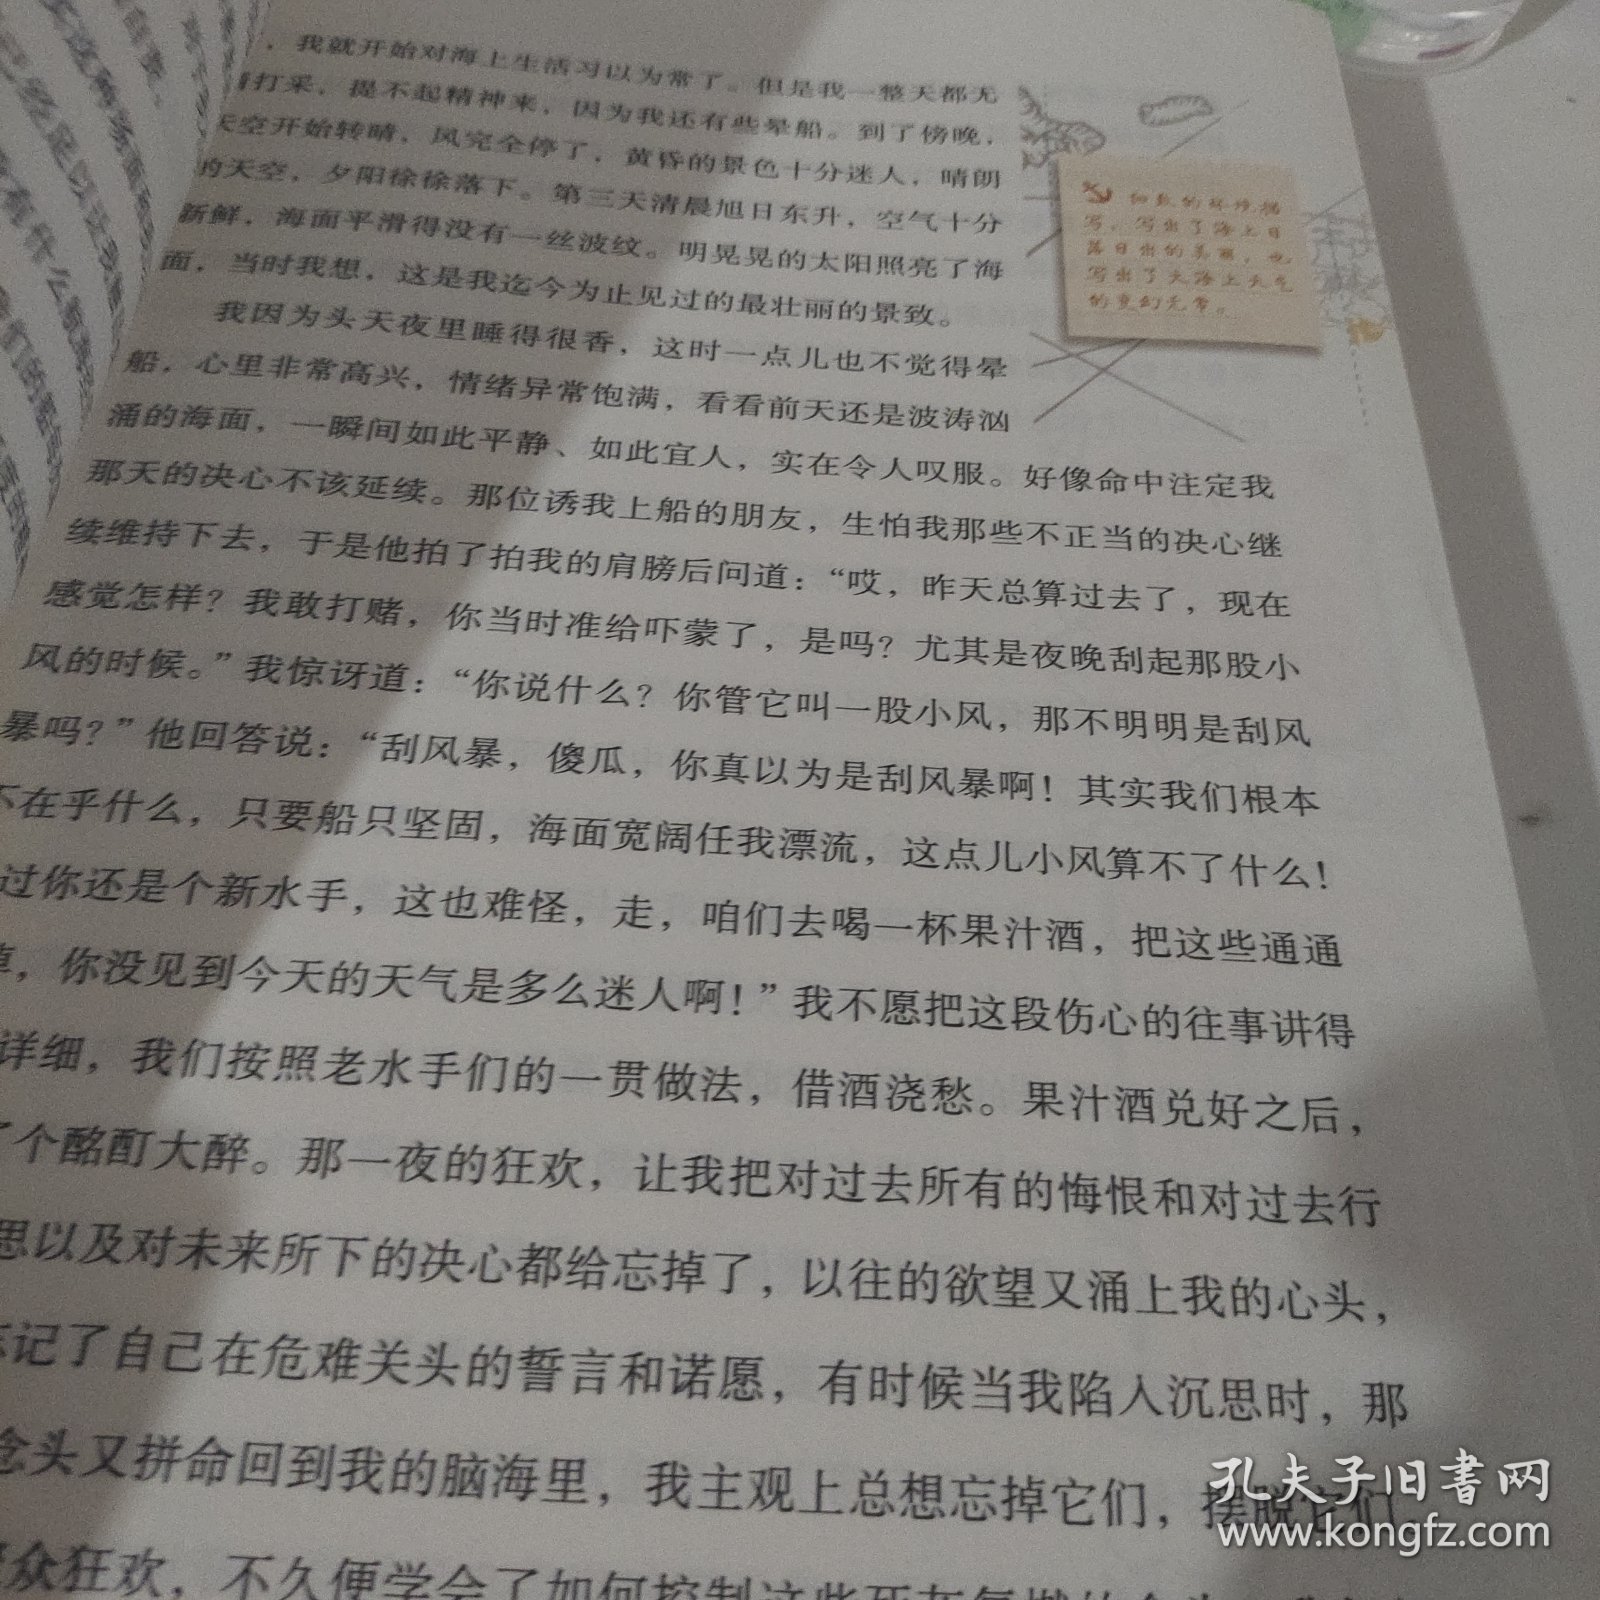 ，我就开始对海上生活习以为常了。但是我一整天都无
打采，提不起精神来，因为我还有些晕船。到了傍晚，
天空开始转晴，风完全停了，黄昏的景色十分迷人，晴朗
的天空，夕阳徐徐落下。第三天清晨旭日东升，空气十分
新鲜，海面平滑得没有一丝波纹。明晃晃的太阳照亮了海
面，当时我想，这是我迄今为止见过的最壮丽的景致。
细致的环境描
写，写出了海上日
落日出的美丽，也
写出了大海上天气
的变幻无常。
我因为头天夜里睡得很香，这时一点儿也不觉得晕
船，心里非常高兴，情绪异常饱满，看看前天还是波涛汹
涌的海面，一瞬间如此平静、如此宜人，实在令人叹服。好像命中注定我
那天的决心不该延续。那位诱我上船的朋友，生怕我那些不正当的决心继
续维持下去，于是他拍了拍我的肩膀后问道：“哎，昨天总算过去了，现在
感觉怎样？我敢打赌，你当时准给吓蒙了，是吗？尤其是夜晚刮起那股小
风的时候。”我惊讶道：“你说什么？你管它叫一股小风，那不明明是刮风
暴吗？”他回答说：“刮风暴，傻瓜，你真以为是刮风暴啊！其实我们根本
不在乎什么，只要船只坚固，海面宽阔任我漂流，这点儿小风算不了什么！
过你还是个新水手，这也难怪，走，咱们去喝一杯果汁酒，把这些通通
，你没见到今天的天气是多么迷人啊！”我不愿把这段伤心的往事讲得
详细，我们按照老水手们的一贯做法，借酒浇愁。果汁酒兑好之后，
了个酩酊大醉。那一夜的狂欢，让我把对过去所有的悔恨和对过去行
思以及对未来所下的决心都给忘掉了，以往的欲望又涌上我的心头，
忘记了自己在危难关头的誓言和诺愿，有时候当我陷入沉思时，那
念头又拼命回到我的脑海里，我主观上总想忘掉它们，摆脱它们，
众狂欢，不久便学会了如何控制这些死灰复燃的
孔夫子旧书网
www.kongfz.com